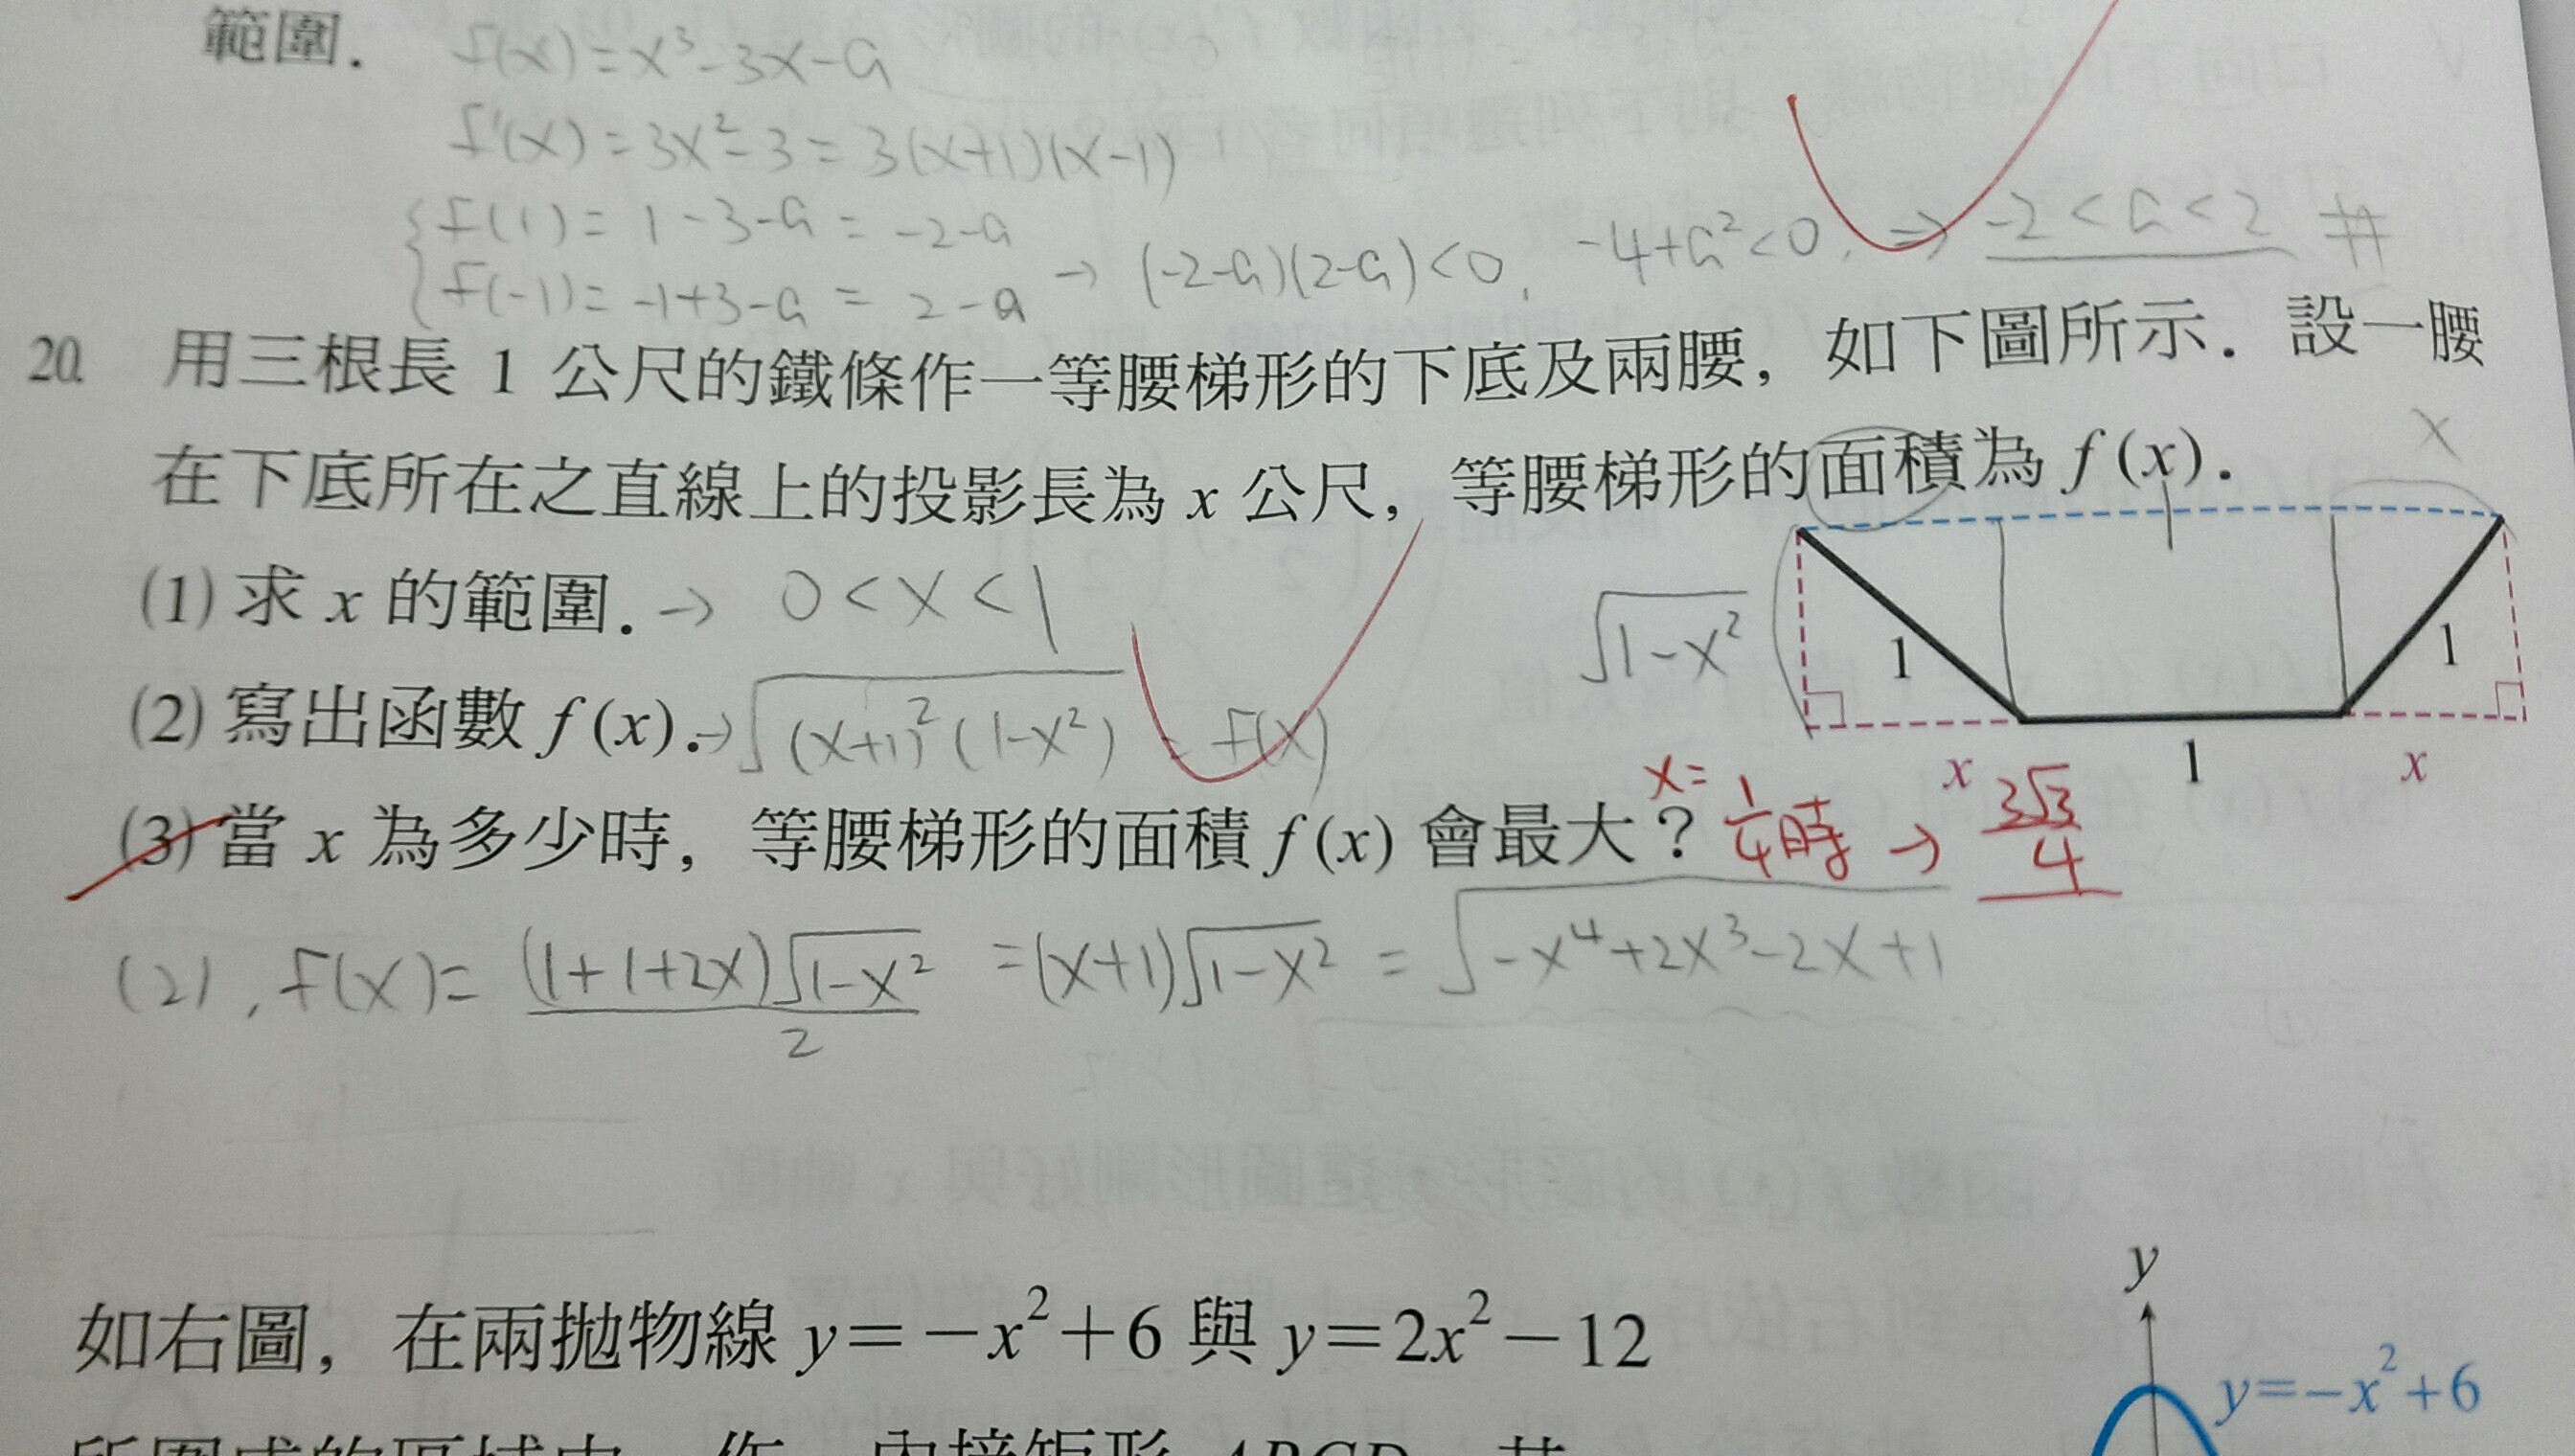 範圍. f(x)=x³-3x-a
f'(x)=3x²-3=3(x+1)(x-1)
f(1)=1-3-a=-2-a
f(-1)=-1+3-a=2-a → (-2-a)(2-a)<0, -4+a²<0, ⇒ -2<a<2 #
20. 用三根長 1 公尺的鐵條作一等腰梯形的下底及兩腰，如下圖所示．設一腰
在下底所在之直線上的投影長為 x 公尺，等腰梯形的面積為 f(x)．
x
1
(1) 求 x 的範圍. → 0<x<1
√(1-x²)
1
1
(2) 寫出函數 f(x). → √((x+1)²(1-x²)) = f(x)
x
1
x
(3) 當 x 為多少時，等腰梯形的面積 f(x) 會最大？ x=1/4時 → 3√3/4
(2), f(x)= (1+1+2x)√(1-x²)/2 =(x+1)√(1-x²) = √(-x⁴+2x³-2x+1)
如右圖，在兩拋物線 y=-x²+6 與 y=2x²-12
y
y=-x²+6